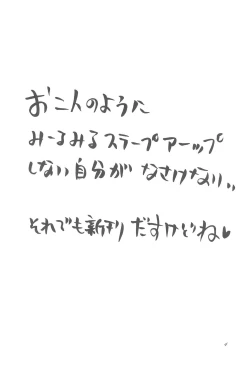 お二人のように
みーるみるステープアーップ
しない自分がなさけない、、
それでも新刊だすけどね♥